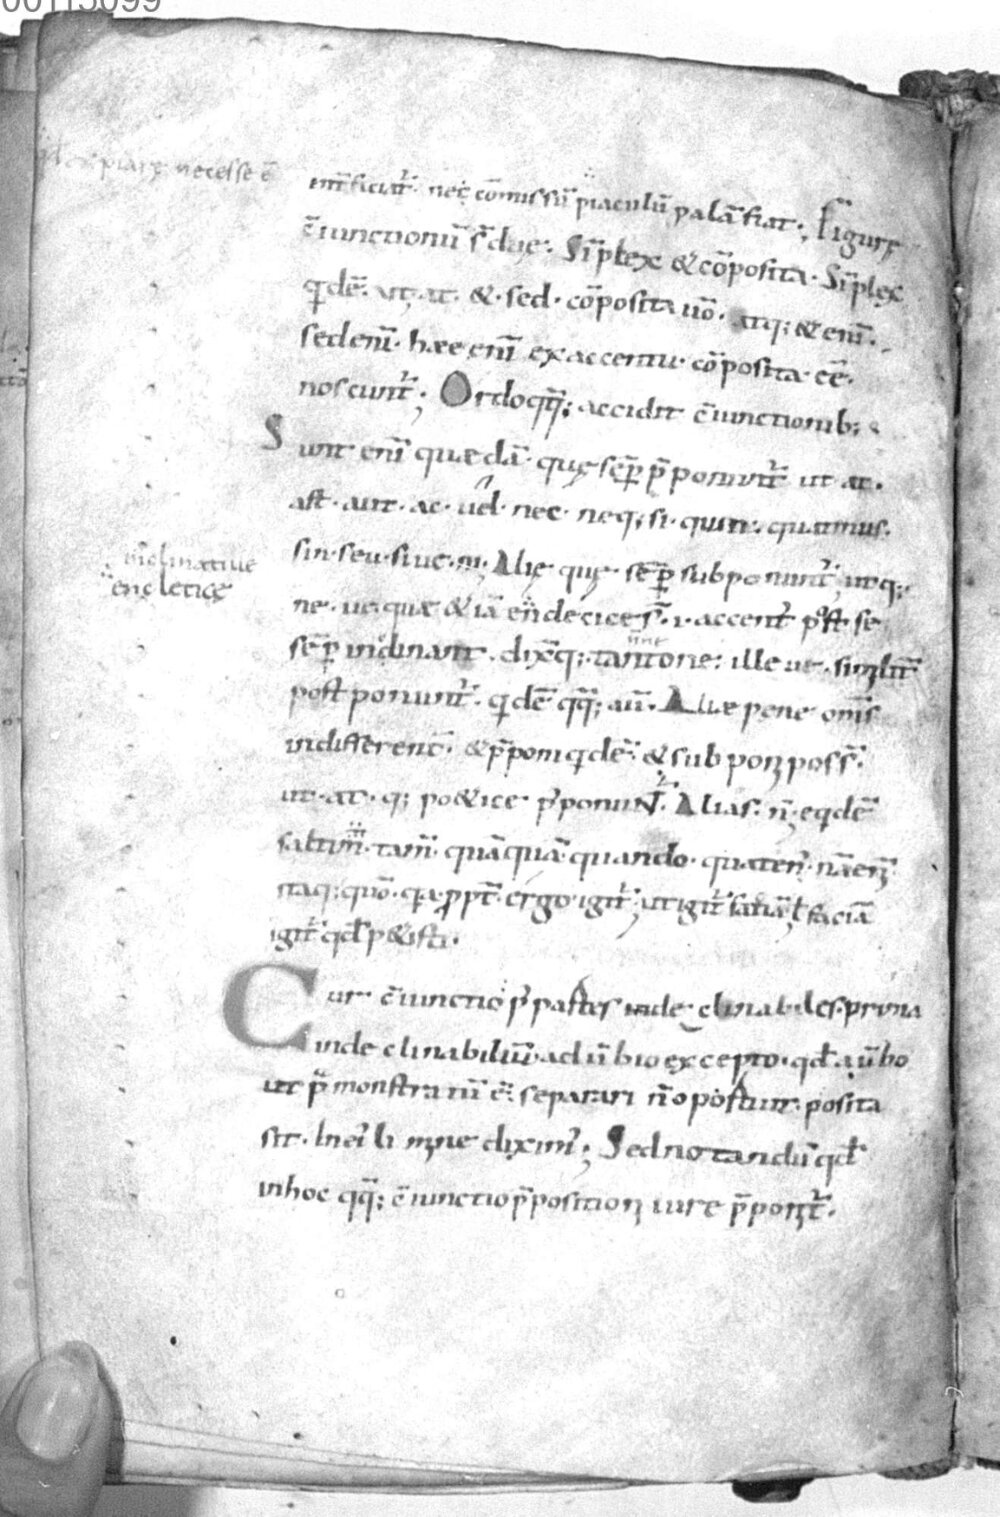 00115099
necesse ē
int̄ficiat᷑· nec cōmissū piaculū palā fiat·; Figurę
c̄iunctionū s̄ duę· Sīplex & cōposita· Sīplex
qͥdē· ut· at· &· sed· cōposita uō· atq; & enī·
sedenī· hæc enī ex accentu· cōposita· eē·
noscunt᷑; Ordo qq̄; accidit c̄iunctionib;
Sunt enī quædā· quę sēp p̄ponunt᷑ ut at·
ast· aut· ac· uel· nec· neq; si· quin· quatinus·
sin· seu· siue· ni· Alię quę sēp subponunt᷑; ut q;
inclinatiue
encleticę
ne· ue· quæ & iā encleticę s̄· accent᷑ post se
sēp inclinant· dixq;· tantone· ille ue· similit̄
post ponunt᷑· qͥdē qq̄; aū· Aliæ pene om̄s
indifferent᷑· & p̄poni qͥdē· & subponi poss̄·
ut· at· q; po&ice p̄ponunt᷑· Alias· n̄· eqͥdē
saltim· tam̄· quāquā· quando· quaten᷒· nā enī
itaq; quō· qͥa· ppt̄· ergo· igit᷑; ut igit᷑
igit᷑ qd̄
Cur c̄iunctio p̄ partes indeclinabiles· prima
indeclinabiliū· aduūbio excepto· qd̄ a uūbo
ut p̄monstratū ē· separari n̄ oportuit· posita
sit· dixim᷒; Sed notandū qd̄
in hoc qq̄; c̄iunctio p̄positioni iure p̄ponit᷑·